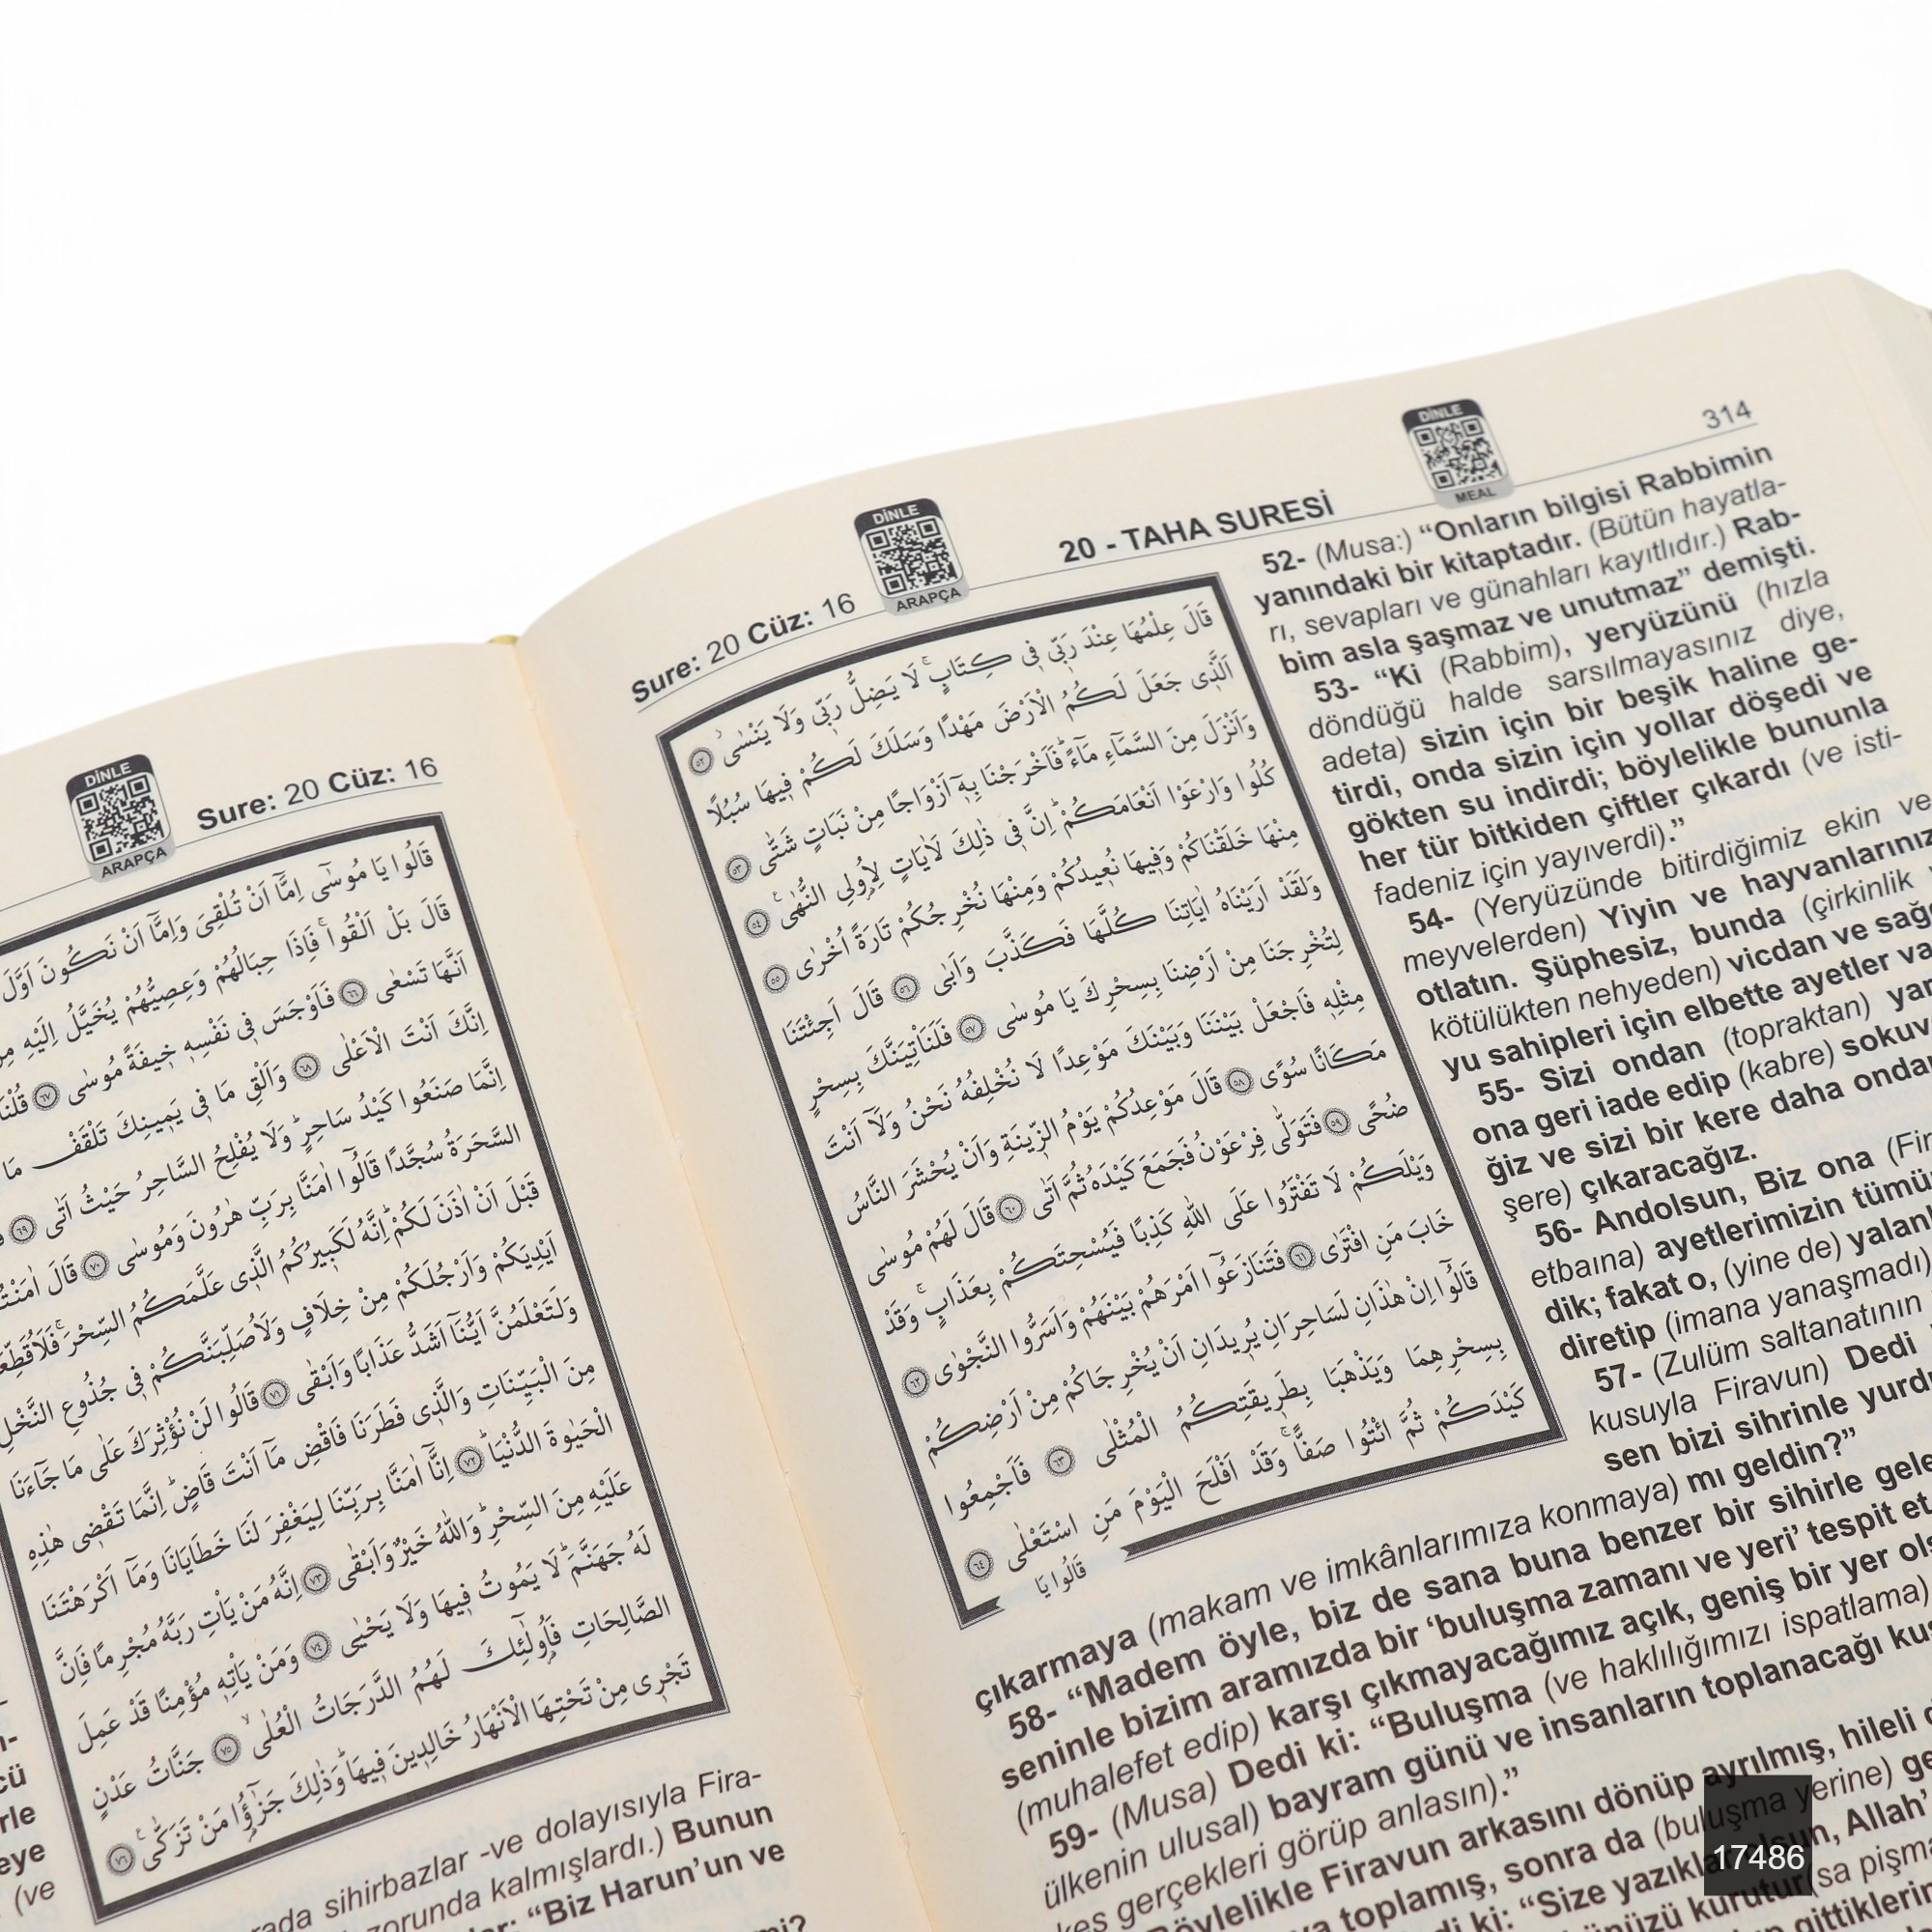 DİNLE
ARAPÇA
Sure: 20 Cüz: 16
قَالُوا يَا مُوسٰٓى اِمَّٓا اَنْ تُلْقِىَ وَاِمَّٓا اَنْ نَكُونَ اَوَّلَ
قَالَ بَلْ اَلْقُواۚ فَاِذَا حِبَالُهُمْ وَعِصِيُّهُمْ يُخَيَّلُ اِلَيْهِ مِنْ
اَنَّهَا تَسْعٰى ٦٦ فَاَوْجَسَ فٖى نَفْسِهٖ خٖيفَةً مُوسٰى ٦٧ قُلْنَا
اِنَّكَ اَنْتَ الْاَعْلٰى ٦٨ وَاَلْقِ مَا فٖى يَمٖينِكَ تَلْقَفْ مَا
اِنَّمَا صَنَعُوا كَيْدُ سَاحِرٍؕ وَلَا يُفْلِحُ السَّاحِرُ حَيْثُ اَتٰى ٦٩
السَّحَرَةُ سُجَّدًا قَالُٓوا اٰمَنَّا بِرَبِّ هٰرُونَ وَمُوسٰى ٧٠ قَالَ اٰمَنْتُمْ
قَبْلَ اَنْ اٰذَنَ لَكُمْؕ اِنَّهُ لَكَبٖيرُكُمُ الَّذٖى عَلَّمَكُمُ السِّحْرَۚ فَلَاُقَطِّعَنَّ
اَيْدِيَكُمْ وَاَرْجُلَكُمْ مِنْ خِلَافٍ وَلَاُصَلِّبَنَّكُمْ فٖى جُذُوعِ النَّخْلِ
وَلَتَعْلَمُنَّ اَيُّنَٓا اَشَدُّ عَذَابًا وَاَبْقٰى ٧١ قَالُوا لَنْ نُؤْثِرَكَ عَلٰى مَا جَٓاءَنَا
مِنَ الْبَيِّنَاتِ وَالَّذٖى فَطَرَنَا فَاقْضِ مَٓا اَنْتَ قَاضٍؕ اِنَّمَا تَقْضٖى هٰذِهِ
الْحَيٰوةَ الدُّنْيَاؕ ٧٢ اِنَّٓا اٰمَنَّا بِرَبِّنَا لِيَغْفِرَ لَنَا خَطَايَانَا وَمَٓا اَكْرَهْتَنَا
عَلَيْهِ مِنَ السِّحْرِؕ وَاللّٰهُ خَيْرٌ وَاَبْقٰى ٧٣ اِنَّهُ مَنْ يَاْتِ رَبَّهُ مُجْرِمًا فَاِنَّ
لَهُ جَهَنَّمَؕ لَا يَمُوتُ فٖيهَا وَلَا يَحْيٰى ٧٤ وَمَنْ يَاْتِهٖ مُؤْمِنًا قَدْ عَمِلَ
الصَّالِحَاتِ فَاُولٰٓئِكَ لَهُمُ الدَّرَجَاتُ الْعُلٰىۙ ٧٥ جَنَّاتُ عَدْنٍ
تَجْرٖى مِنْ تَحْتِهَا الْاَنْهَارُ خَالِدٖينَ فٖيهَاؕ وَذٰلِكَ جَزٰٓؤُا مَنْ تَزَكّٰىۚ ٧٦
sihirbazlar -ve dolayısıyla Fira-
zorunda kalmışlardı.) Bunun
“Biz Harun’un ve
Sure: 20 Cüz: 16
DİNLE
ARAPÇA
20 - TAHA SURESİ
DİNLE
MEAL
314
قَالَ عِلْمُهَا عِنْدَ رَبّٖى فٖى كِتَابٍۚ لَا يَضِلُّ رَبّٖى وَلَا يَنْسٰىۙ ٥٢
اَلَّذٖى جَعَلَ لَكُمُ الْاَرْضَ مَهْدًا وَسَلَكَ لَكُمْ فٖيهَا سُبُلًا
وَاَنْزَلَ مِنَ السَّمَٓاءِ مَٓاءًؕ فَاَخْرَجْنَا بِهٖٓ اَزْوَاجًا مِنْ نَبَاتٍ شَتّٰى ٥٣
كُلُوا وَارْعَوْا اَنْعَامَكُمْؕ اِنَّ فٖى ذٰلِكَ لَاٰيَاتٍ لِاُولِى النُّهٰىۚ ٥٤
مِنْهَا خَلَقْنَاكُمْ وَفٖيهَا نُعٖيدُكُمْ وَمِنْهَا نُخْرِجُكُمْ تَارَةً اُخْرٰى ٥٥
وَلَقَدْ اَرَيْنَاهُ اٰيَاتِنَا كُلَّهَا فَكَذَّبَ وَاَبٰى ٥٦ قَالَ اَجِئْتَنَا
لِتُخْرِجَنَا مِنْ اَرْضِنَا بِسِحْرِكَ يَا مُوسٰى ٥٧ فَلَنَاْتِيَنَّكَ بِسِحْرٍ
مِثْلِهٖ فَاجْعَلْ بَيْنَنَا وَبَيْنَكَ مَوْعِدًا لَا نُخْلِفُهُ نَحْنُ وَلَٓا اَنْتَ
مَكَانًا سُوًى ٥٨ قَالَ مَوْعِدُكُمْ يَوْمُ الزّٖينَةِ وَاَنْ يُحْشَرَ النَّاسُ
ضُحًى ٥٩ فَتَوَلّٰى فِرْعَوْنُ فَجَمَعَ كَيْدَهُ ثُمَّ اَتٰى ٦٠ قَالَ لَهُمْ مُوسٰى
وَيْلَكُمْ لَا تَفْتَرُوا عَلَى اللّٰهِ كَذِبًا فَيُسْحِتَكُمْ بِعَذَابٍۚ وَقَدْ
خَابَ مَنِ افْتَرٰى ٦١ فَتَنَازَعُٓوا اَمْرَهُمْ بَيْنَهُمْ وَاَسَرُّوا النَّجْوٰى ٦٢
قَالُٓوا اِنْ هٰذَانِ لَسَاحِرَانِ يُرٖيدَانِ اَنْ يُخْرِجَاكُمْ مِنْ اَرْضِكُمْ
بِسِحْرِهِمَا وَيَذْهَبَا بِطَرٖيقَتِكُمُ الْمُثْلٰى ٦٣ فَاَجْمِعُوا
كَيْدَكُمْ ثُمَّ ائْتُوا صَفًّاۚ وَقَدْ اَفْلَحَ الْيَوْمَ مَنِ اسْتَعْلٰى ٦٤
قَالُوا يَا
52- (Musa:) “Onların bilgisi Rabbimin
yanındaki bir kitaptadır. (Bütün hayatla-
rı, sevapları ve günahları kayıtlıdır.) Rab-
bim asla şaşmaz ve unutmaz” demişti.
53- “Ki (Rabbim), yeryüzünü (hızla
döndüğü halde sarsılmayasınız diye,
adeta) sizin için bir beşik haline ge-
tirdi, onda sizin için yollar döşedi ve
gökten su indirdi; böylelikle bununla
her tür bitkiden çiftler çıkardı (ve isti-
fadeniz için yayıverdi).”
54- (Yeryüzünde bitirdiğimiz ekin ve
meyvelerden) Yiyin ve hayvanlarınız
otlatın. Şüphesiz, bunda (çirkinlik
kötülükten nehyeden) vicdan ve sağ
yu sahipleri için elbette ayetler va
55- Sizi ondan (topraktan) yar
ona geri iade edip (kabre) sokuv
ğiz ve sizi bir kere daha ondan
şere) çıkaracağız.
56- Andolsun, Biz ona (Fir
etbaına) ayetlerimizin tümü
dik; fakat o, (yine de) yalanl
diretip (imana yanaşmadı)
57- (Zulüm saltanatının
kusuyla Firavun) Dedi
sen bizi sihrinle yurdu
çıkarmaya (makam ve imkânlarımıza konmaya) mı geldin?”
58- “Madem öyle, biz de sana buna benzer bir sihirle gele
seninle bizim aramızda bir ‘buluşma zamanı ve yeri’ tespit et
(muhalefet edip) karşı çıkmayacağımız açık, geniş bir yer ols
59- (Musa) Dedi ki: “Buluşma (ve haklılığımızı ispatlama)
ülkenin ulusal) bayram günü ve insanların toplanacağı kuş
kes gerçekleri görüp anlasın).”
Böylelikle Firavun arkasını dönüp ayrılmış, hileli
toplamış, sonra da (buluşma yerine) ge
ki: “Size yazıklar olsun, Allah’
kurutur
17486